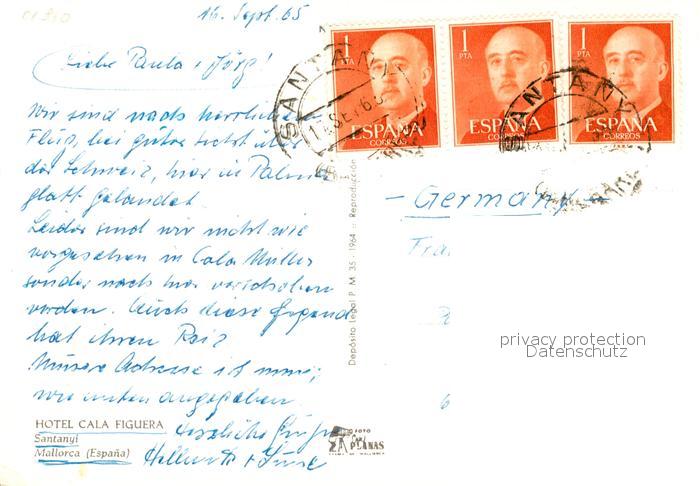 16. Sept. 65
Liebe Paula + Jörg!
Wir sind nach herrlichem
Flug, bei guter Sicht über
der Schweiz, hier in Palma
glatt gelandet.
Leider sind wir nicht wie
vorgesehen in Cala Millor
sondern nach hier verschoben
worden. Auch diese Gegend
hat ihren Reiz
Unsere Adresse ist nun,
wie unten angegeben.
Herzliche Grüße
Hellmuth +
HOTEL CALA FIGUERA
Santanyí
Mallorca (España)
Depósito Legal P. M. 35 - 1964 :: Reproducción
1 PTA
ESPAÑA
CORREOS
1 PTA
ESPAÑA
CORREOS
1 PTA
ESPAÑA
CORREOS
SANTANY
SANTANY
- Germany
Fra
privacy protection
Datenschutz
FOTO
PLANAS